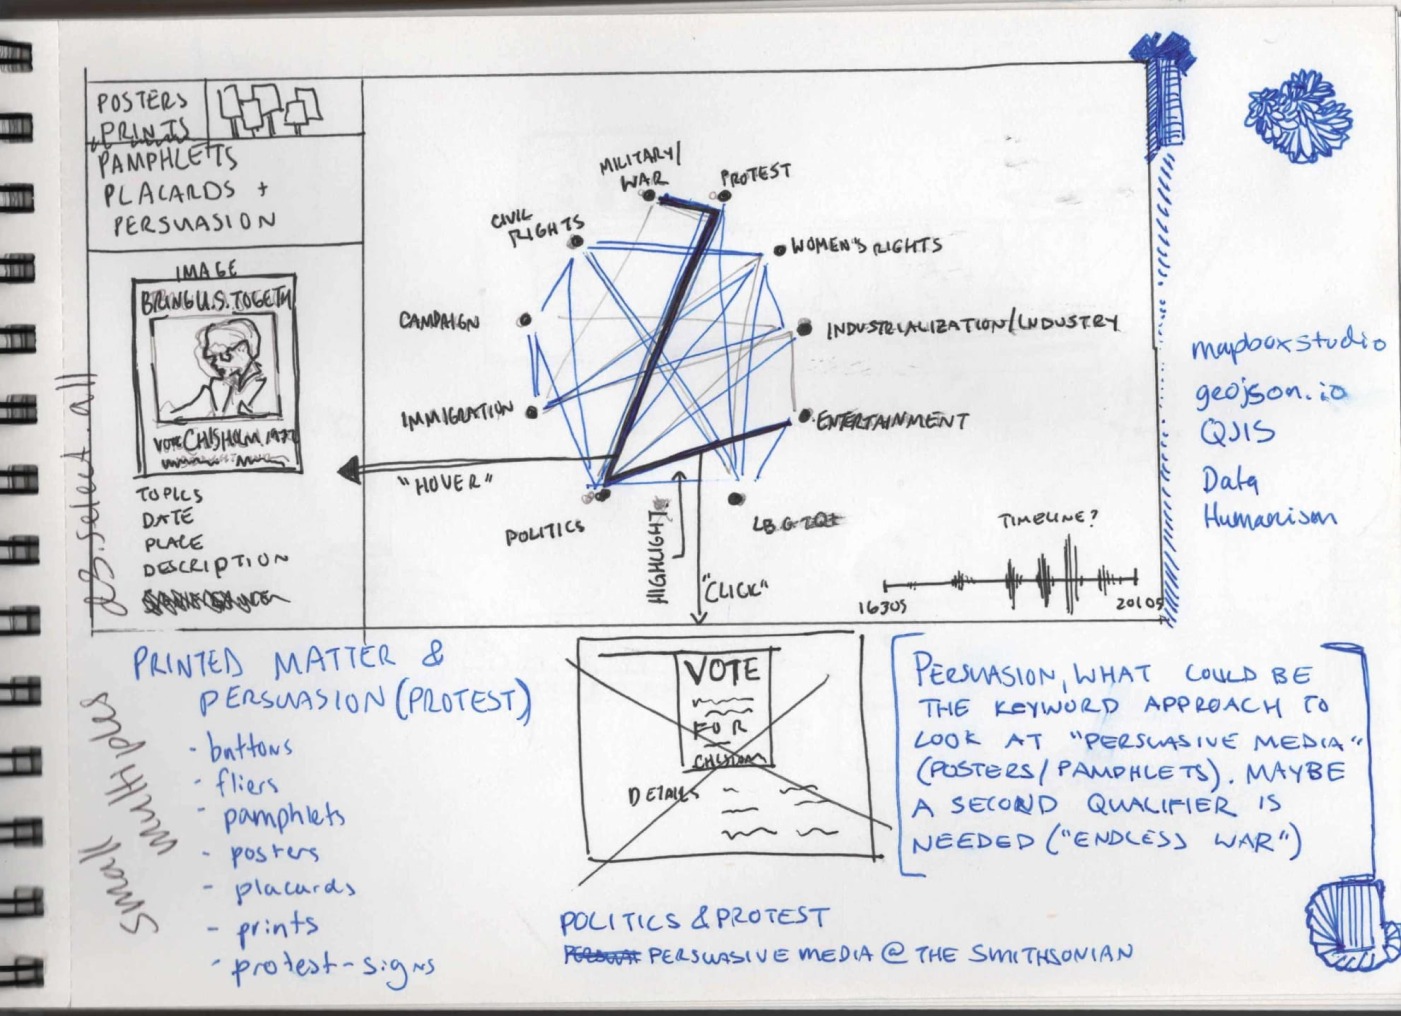 POSTERS
PRINTS
PAMPHLETS
PLACARDS +
PERSUASION
IMAGE
BRING U.S. TOGETH
VOTE CHISHOLM 1972
TOPICS
DATE
PLACE
DESCRIPTION
d3.select.all
MILITARY/
WAR
PROTEST
CIVIL
RIGHTS
WOMEN'S RIGHTS
CAMPAIGN
INDUSTRIALIZATION/INDUSTRY
IMMIGRATION
ENTERTAINMENT
"HOVER"
POLITICS
LBGTQI
HIGHLIGHT
"CLICK"
TIMELINE?
1630S
2010S
mapbox studio
geojson.io
QJIS
Data
Humanism
PRINTED MATTER &
PERSUASION (PROTEST)
- buttons
- fliers
- pamphlets
- posters
- placards
- prints
- protest-signs
Small
multiples
VOTE
FOR
DETAILS
PERSUASION, WHAT COULD BE
THE KEYWORD APPROACH TO
LOOK AT "PERSUASIVE MEDIA"
(POSTERS/PAMPHLETS). MAYBE
A SECOND QUALIFIER IS
NEEDED ("ENDLESS WAR")
POLITICS & PROTEST
PERSUASIVE MEDIA @ THE SMITHSONIAN